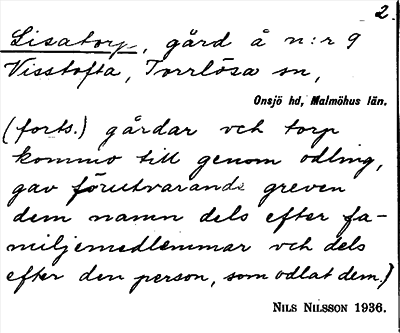 2.
Lisatorp, gård å n:r 9
Visstofta, Torrlösa sn,
Onsjö hd, Malmöhus län.
(forts.) gårdar och torp
kommo till genom odling,
gav förutvarande greven
dem namn dels efter fa-
miljemedlemmar och dels
efter den person, som odlat dem.)
NILS NILSSON 1936.